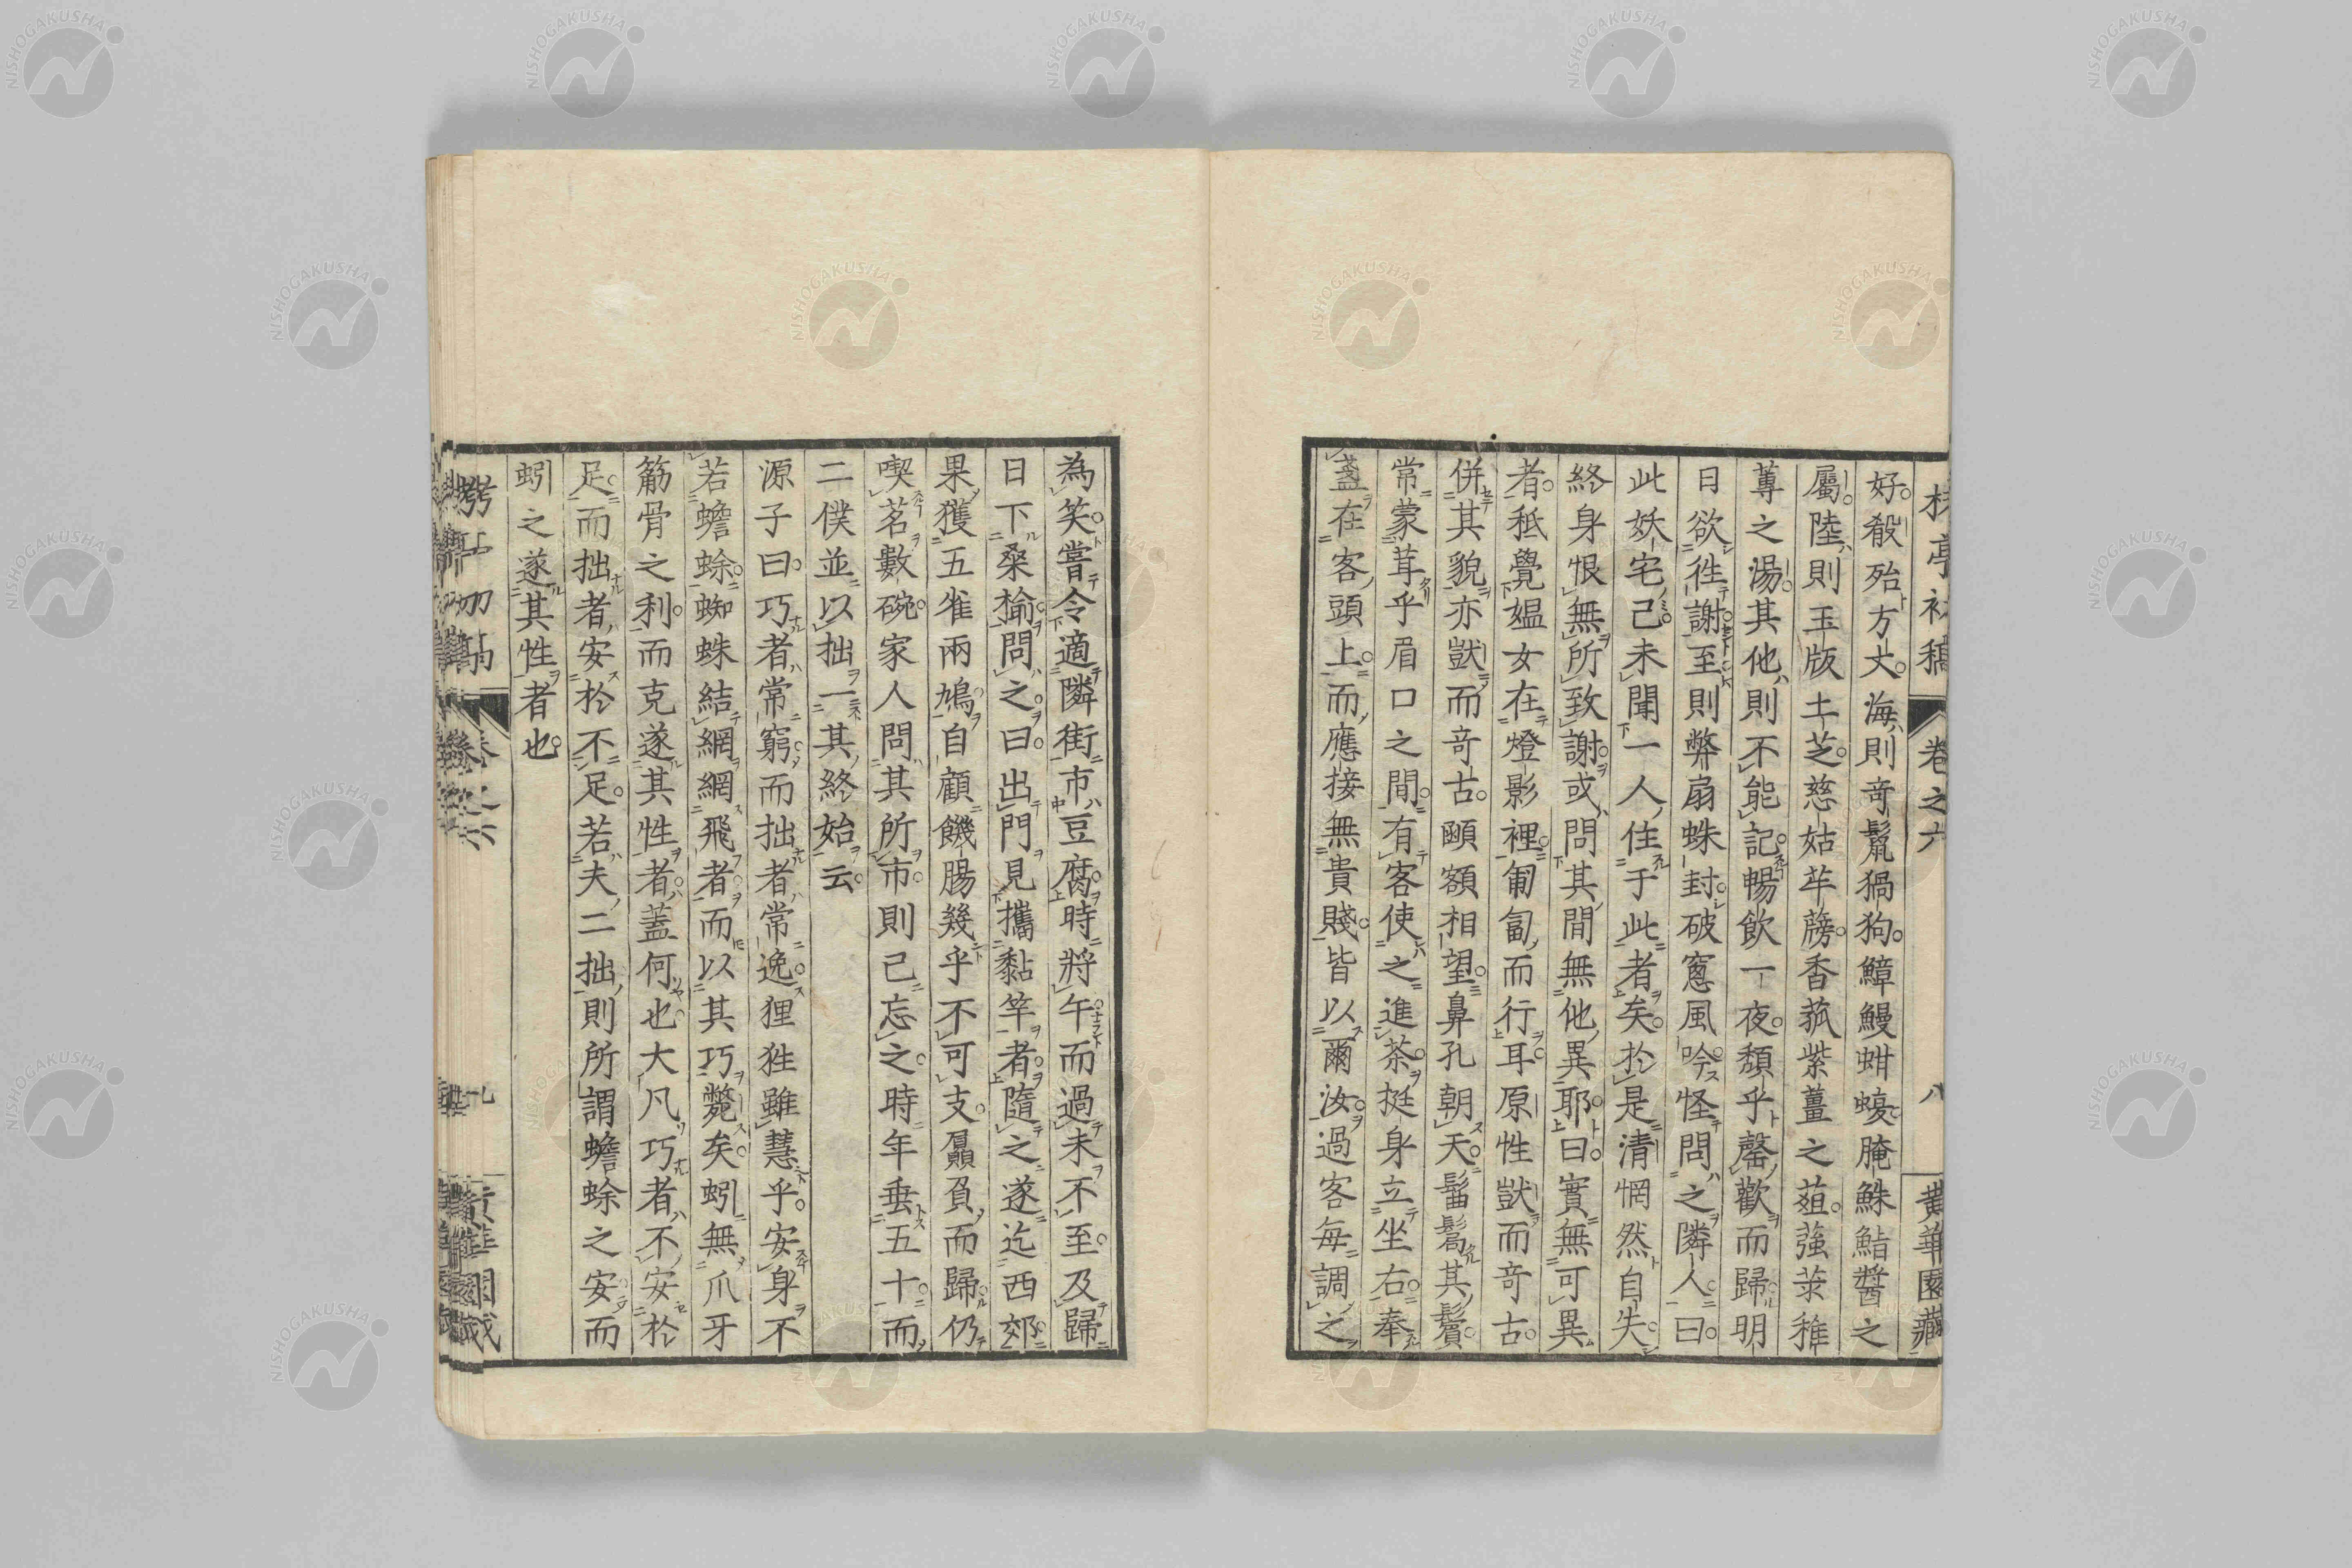 亭初稿 卷之六 八 黃華園藏
好殽殆方丈海則奇鬣猧狗鱆鰻蚶蠔腌鮢鮚醬之
屬陸則玉版土芝慈姑芉蒡香菰紫薑之葅蔃蒣稚
蓴之湯其他則不能記暢飲一夜頹乎罄歡而歸明
日欲徃謝至則弊扇蛛封破窻風吟怪問之隣人曰
此妖宅己未聞一人住于此者矣於是清惘然自失
終身恨無所致謝或問其間無他異耶曰實無可異
者秪覺媼女在燈影裡匍匐而行耳原性獃而奇古
併其貌亦獃而奇古頤額相望鼻孔朝天鬙鬜其鬢
常蒙茸乎眉口之間有客使之進茶挺身立坐右奉
盞在客頭上而應接無貴賤皆以爾汝過客每調之
為笑嘗令適隣街市豆腐時將午而過未不至及歸
日下桑揄問之曰出門見攜黏竿者隨之遂迄西郊
果獲五雀兩鳩自顧饑腸幾乎不可支贔屓而歸仍
喫茗數碗家人問其所市則已忘之時年垂五十而
二僕並以拙一其終始云
源子曰巧者常窮而拙者常逸狸狌雖慧乎安身不
若蟾蜍蜘蛛結網網飛者而以其巧斃矣蚓無爪牙
筋骨之利而克遂其性者蓋何也大凡巧者不安於
足而拙者安於不足若夫二拙則所謂蟾蜍之安而
蚓之遂其性者也
NISHOGAKUSHA